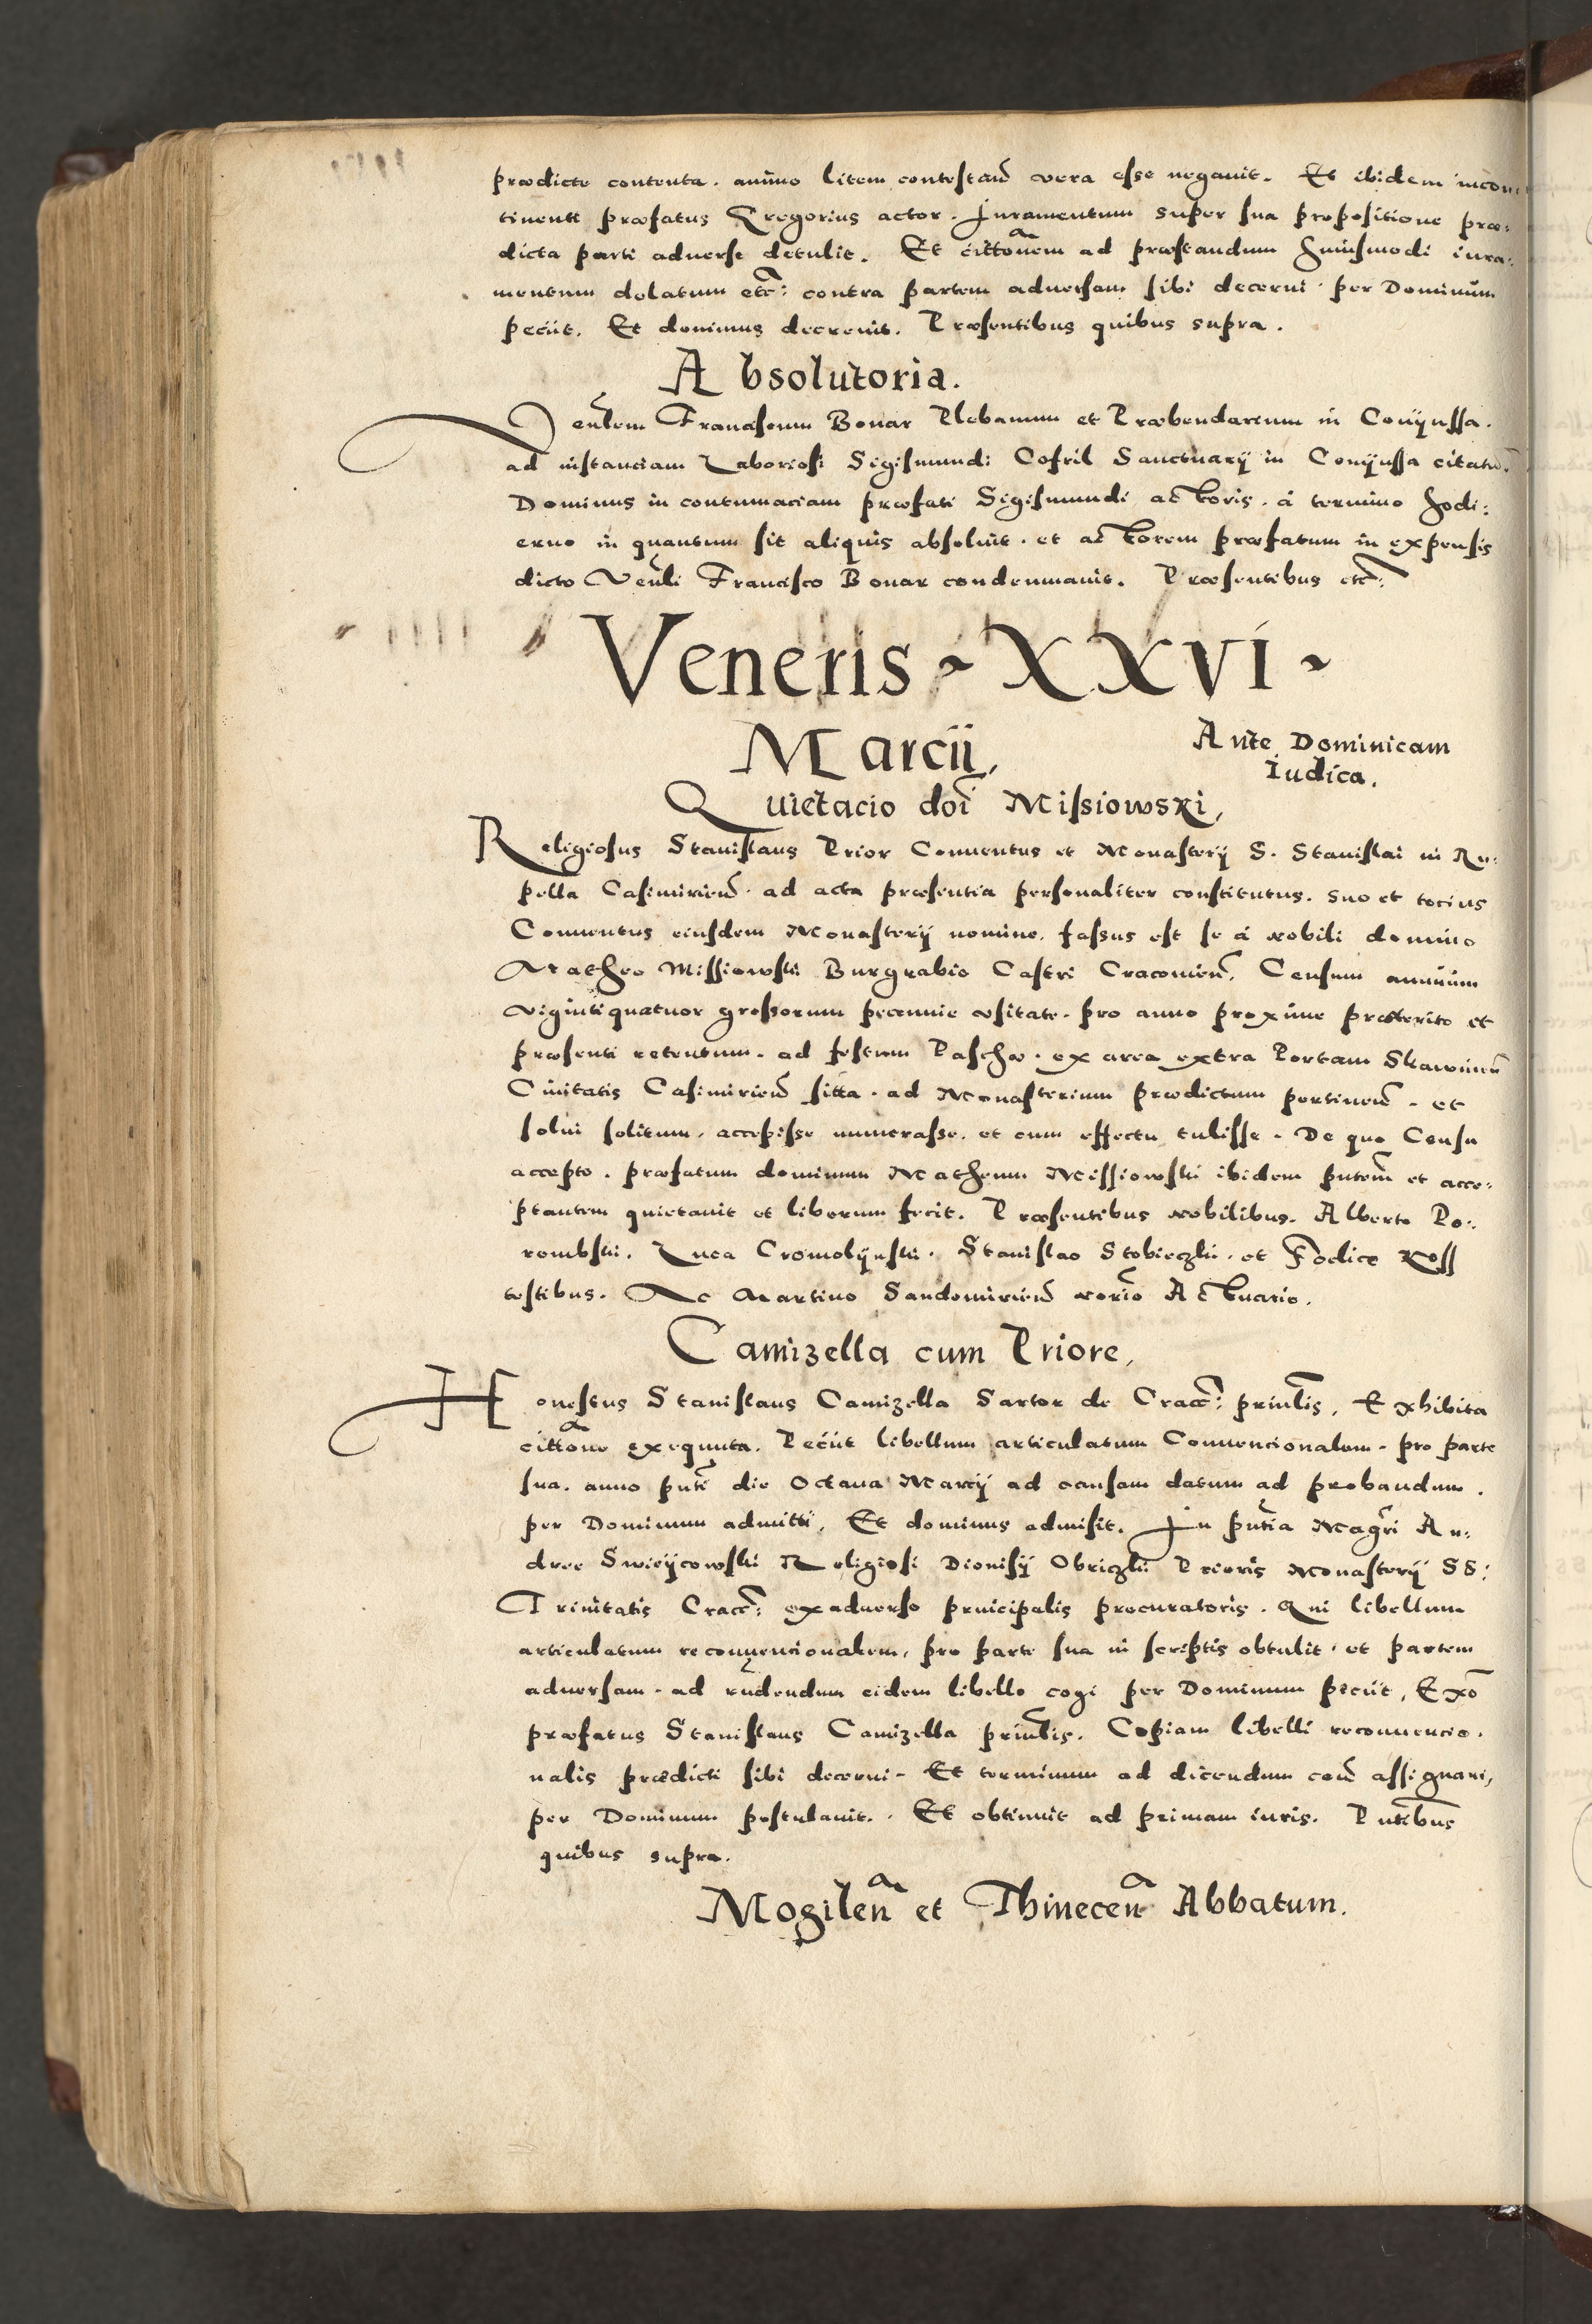 prædicte contenta. animo litem contestan̄ vera esse negauit. Et ibidem incon
tinenti præfatus Gregorius actor. Juramentum super sua propositione præ:
dicta parti aduerse detulit. Et citt̃onem ad præstandum huiusmodi iura:
mentum delatum etc̃: contra partem aduersam sibi decerni per Dominum
peciit. Et dominus decreuit. Præsentibus quibus supra.
Absolutoria.
Venl̃em Franciscum Bonar Plebanum et Præbendarium in Conijussa.
ad instanciam Laboriosi Sigismundi Cofril Sanctuarij in Conijussa citatũ.
Dominus in contumaciam præfati Sigismundi actoris. à termino hodi:
erno in quantum sit aliquis absoluit. et actorem præfatum in expensis
dicto Venl̃i Francisco Bonar condemnauit. Præsentibus etc̃:
Veneris ~ XXVI ~
Marcii,
Ante Dominicam
Iudica.
Quietacio doĩ Missiowski,
Religiosus Stanislaus Prior Conuentus et Monasterij S. Stanislai in Ru:
pella Casimirień. ad acta præsentia personaliter constitutus. suo et tocius
Conuentus eiusdem Monasterij nomine. fassus est se à nobili domino
Matheo Missiowski Burgrabio Castri Cracouień. Censum annuum
vigintiquatuor grossorum pecunie vsitate. pro anno proxime præterito et
præsenti retentum. ad festum Paschæ. ex area extra Portam Skawineñ
Ciuitatis Casimirień sitta. ad Monasterium prædictum pertineñ. et
solui solitum. accepisse numerasse. et cum effectu tulisse. De quo Censu
accepto. præfatum dominum Matheum Missiowski ibidem pñtem et acce:
ptantem quietauit et liberum fecit. Præsentibus nobilibus. Alberto Po:
rembski. Luca Cromolijnski. Stanislao Stobieczki. et Foelice Koss
testibus. Ac Martino Sandomirień norio Actuario.
Camizella cum Priore,
Honestus Stanislaus Camizella Sartor de Crac̃: prinl̃is, Exhibita
citt̃one exequuta. Peciit libellum articulatum Conuencionalem. pro parte
sua. anno pñti die Octaua Marcij ad causam datum ad probandum.
per Dominum admitti, Et dominus admisit. In pñtia Mag̃ri An:
dree Swieijcowski Religiosi Dionisij Obriczki Prioris Monasterij SS:
Trinitatis Crac̃: ex aduerso principalis procuratoris. Qui libellum
articulatum reconuencionalem, pro parte sua in scriptis obtulit. et partem
aduersam. ad rñdendum eidem libello cogi per Dominum peciit, Exõ
præfatus Stanislaus Camizella prinl̃is. Copiam libelli reconuencio.
nalis prædicti sibi decerni. Et terminum ad dicendum coñ assignari,
per Dominum postulauit. Et obtinuit ad primam iuris. Pñtibus
quibus supra.
Mogileñ et Thineceñ Abbatum.